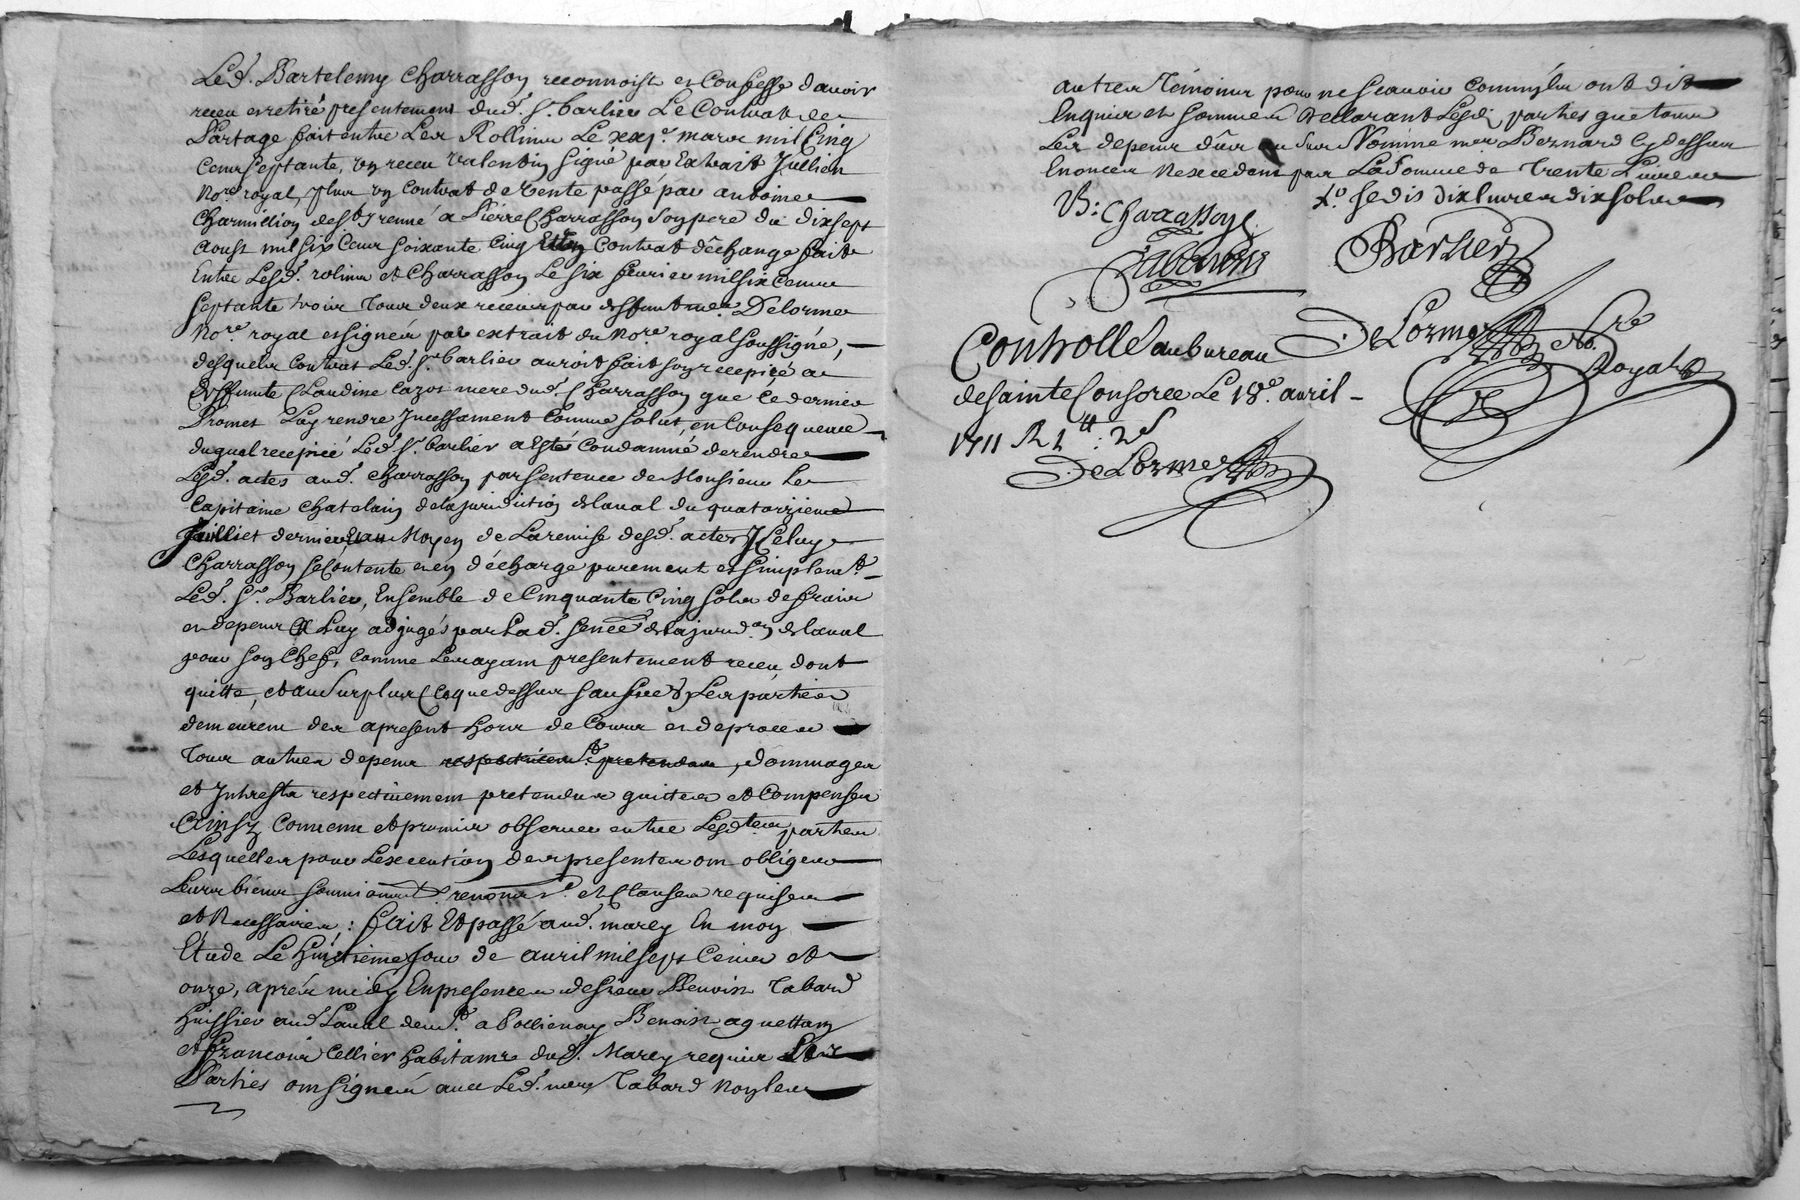 Led. Bartelemy Charrasson reconnoist et Confesse d'avoir
receu et retiré presentement dud. Sr. barlier Le Contrat de
Partage fait entre Les Rollins Le xxje. mars mil Cinq
Cens septante, un receu Valentin signé par Extrait Jullien
Nore. royal, plus un Contrat de vente passé par antoine
Charmillion a Pierre Charrasson son pere du dixsept
aoust mil six Cens soixante Cinq Contrat déchange fait
Entre Lesd. rolins et Charrasson Le six feurier mil six Cens
septante trois tous deux receus par deffunt me. Delorme
Nore. royal et signés par extrait du Nore. royal soussigné,
desquels Contrats Led. Sr. barlier auroit fait son recepicé a
deffunte Claudine Cazot mere dud. Charrasson que Ce dernier
Promet Luy rendre Incessament Comme solut, en Consequence
duquel recepicé Led. Sr. barlier a Esté Condamné de rendre
Lesd. actes aud. Charrasson par sentence de Monsieur Le
Capitaine Chatelain de la jurisdiction de laual du quatorzieme
Juilliet dernier, Moyen de La remise desd. actes Iceluy
Charrasson se Contente et en décharge purement et simplemt.
Led. Sr. Barlier, Ensemble de Cinquante Cinq sols de frais
et depens a Luy adjugés par Lad. sence de la jurisdon. de laual
pour son Chef, Comme Les ayant presentement receu dont
quitte, et au surplus Ce que dessus Les parties
demeurent des apresent hors de Cours et de proces
tous autres depens respectiuemt. pretendus, dommages
et Intrests respectiuement pretendus quittes et Compensés
Ainsy Conuenu et promis obseruer entre Lesdtes. parties
Lesquelles pour Lexecution des presentes ont obligés
Leurs biens soumissions renonons. et Clauses requises
et Necessaires : fait Et passé aud. marcy En mon
Etude Le Huictieme jour de auril mil sept Cens et
onze, aprés midy En presence de sieur Benoist Tabard
huissier aud. Laual demt. a Pollienay Benoist aguettant
et francois Cellier habitants dud. Marcy requis Les
Parties ont signés auec Led. me. Tabard Non les
autres témoins pour ne scauoir Comme Ils ont dit
Enquis et sommés Declarant Lesd. parties que tous
Les depens dûs au sus Nommé me. Bernard Cy dessus
Enoncés Nexcedent pas La somme de Trente Liures
Je dis dix liures dix sols
B: Charasson
Tabard
Barlier
DeLorme Nore. Royal
Controllé au bureau
de sainte Consorce Le 18e. auril
1711 R
DeLorme